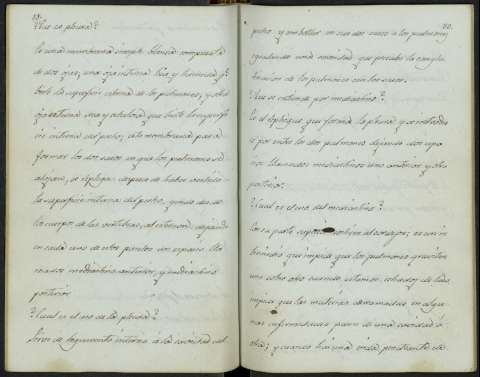 ¿Que es pleura?
Es una membrana simple blanda compuesta
de dos ojas, una oja interna lisa, y humeda q.e
cubre la superficie esterna de los pulmones, y otra
oja esterna que cubre la superfi-
cie interna del pecho; esta membrana para
formar los dos sacos en que los pulmones se
alojan, se repliega despues de haber cubierto
la superficie interna del pecho, y desde
el cuerpo de las vertebras, al esternon, dejando
en cada uno de estos puntos un espacio lla-
mados mediastino anterior, y mediastino
posterior.
¿Cual es el uso de la pleura?
Sirve de tegumento interno á la cavidad del
80.
pecho, y envolver en sus dos sacos a los pulmones
una cavidad que
de los pulmones con los sacos.
¿Que se entiende por mediastino?
Es el repliegue que forma la pleura y se estiende
por entre los dos pulmones dejando dos espa-
cios llamados mediastinos uno anterior, y otro
posterior.
¿Cual es el uso del mediastino?
En su parte contiene al corazon; es
que impida que los pulmones graviten
uno sobre otro cuando estamos echados de lado,
impida que las materias derramadas en algu-
nas enfermedades pasen de una cavidad á
otra; y cuando hai una herida penetrante de